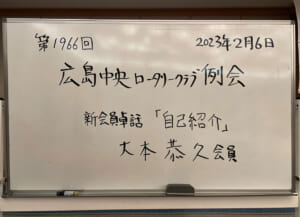 第1966回 2023年2月6日
広島中央ロータリークラブ例会
新会員卓話「自己紹介」
大本恭久会員